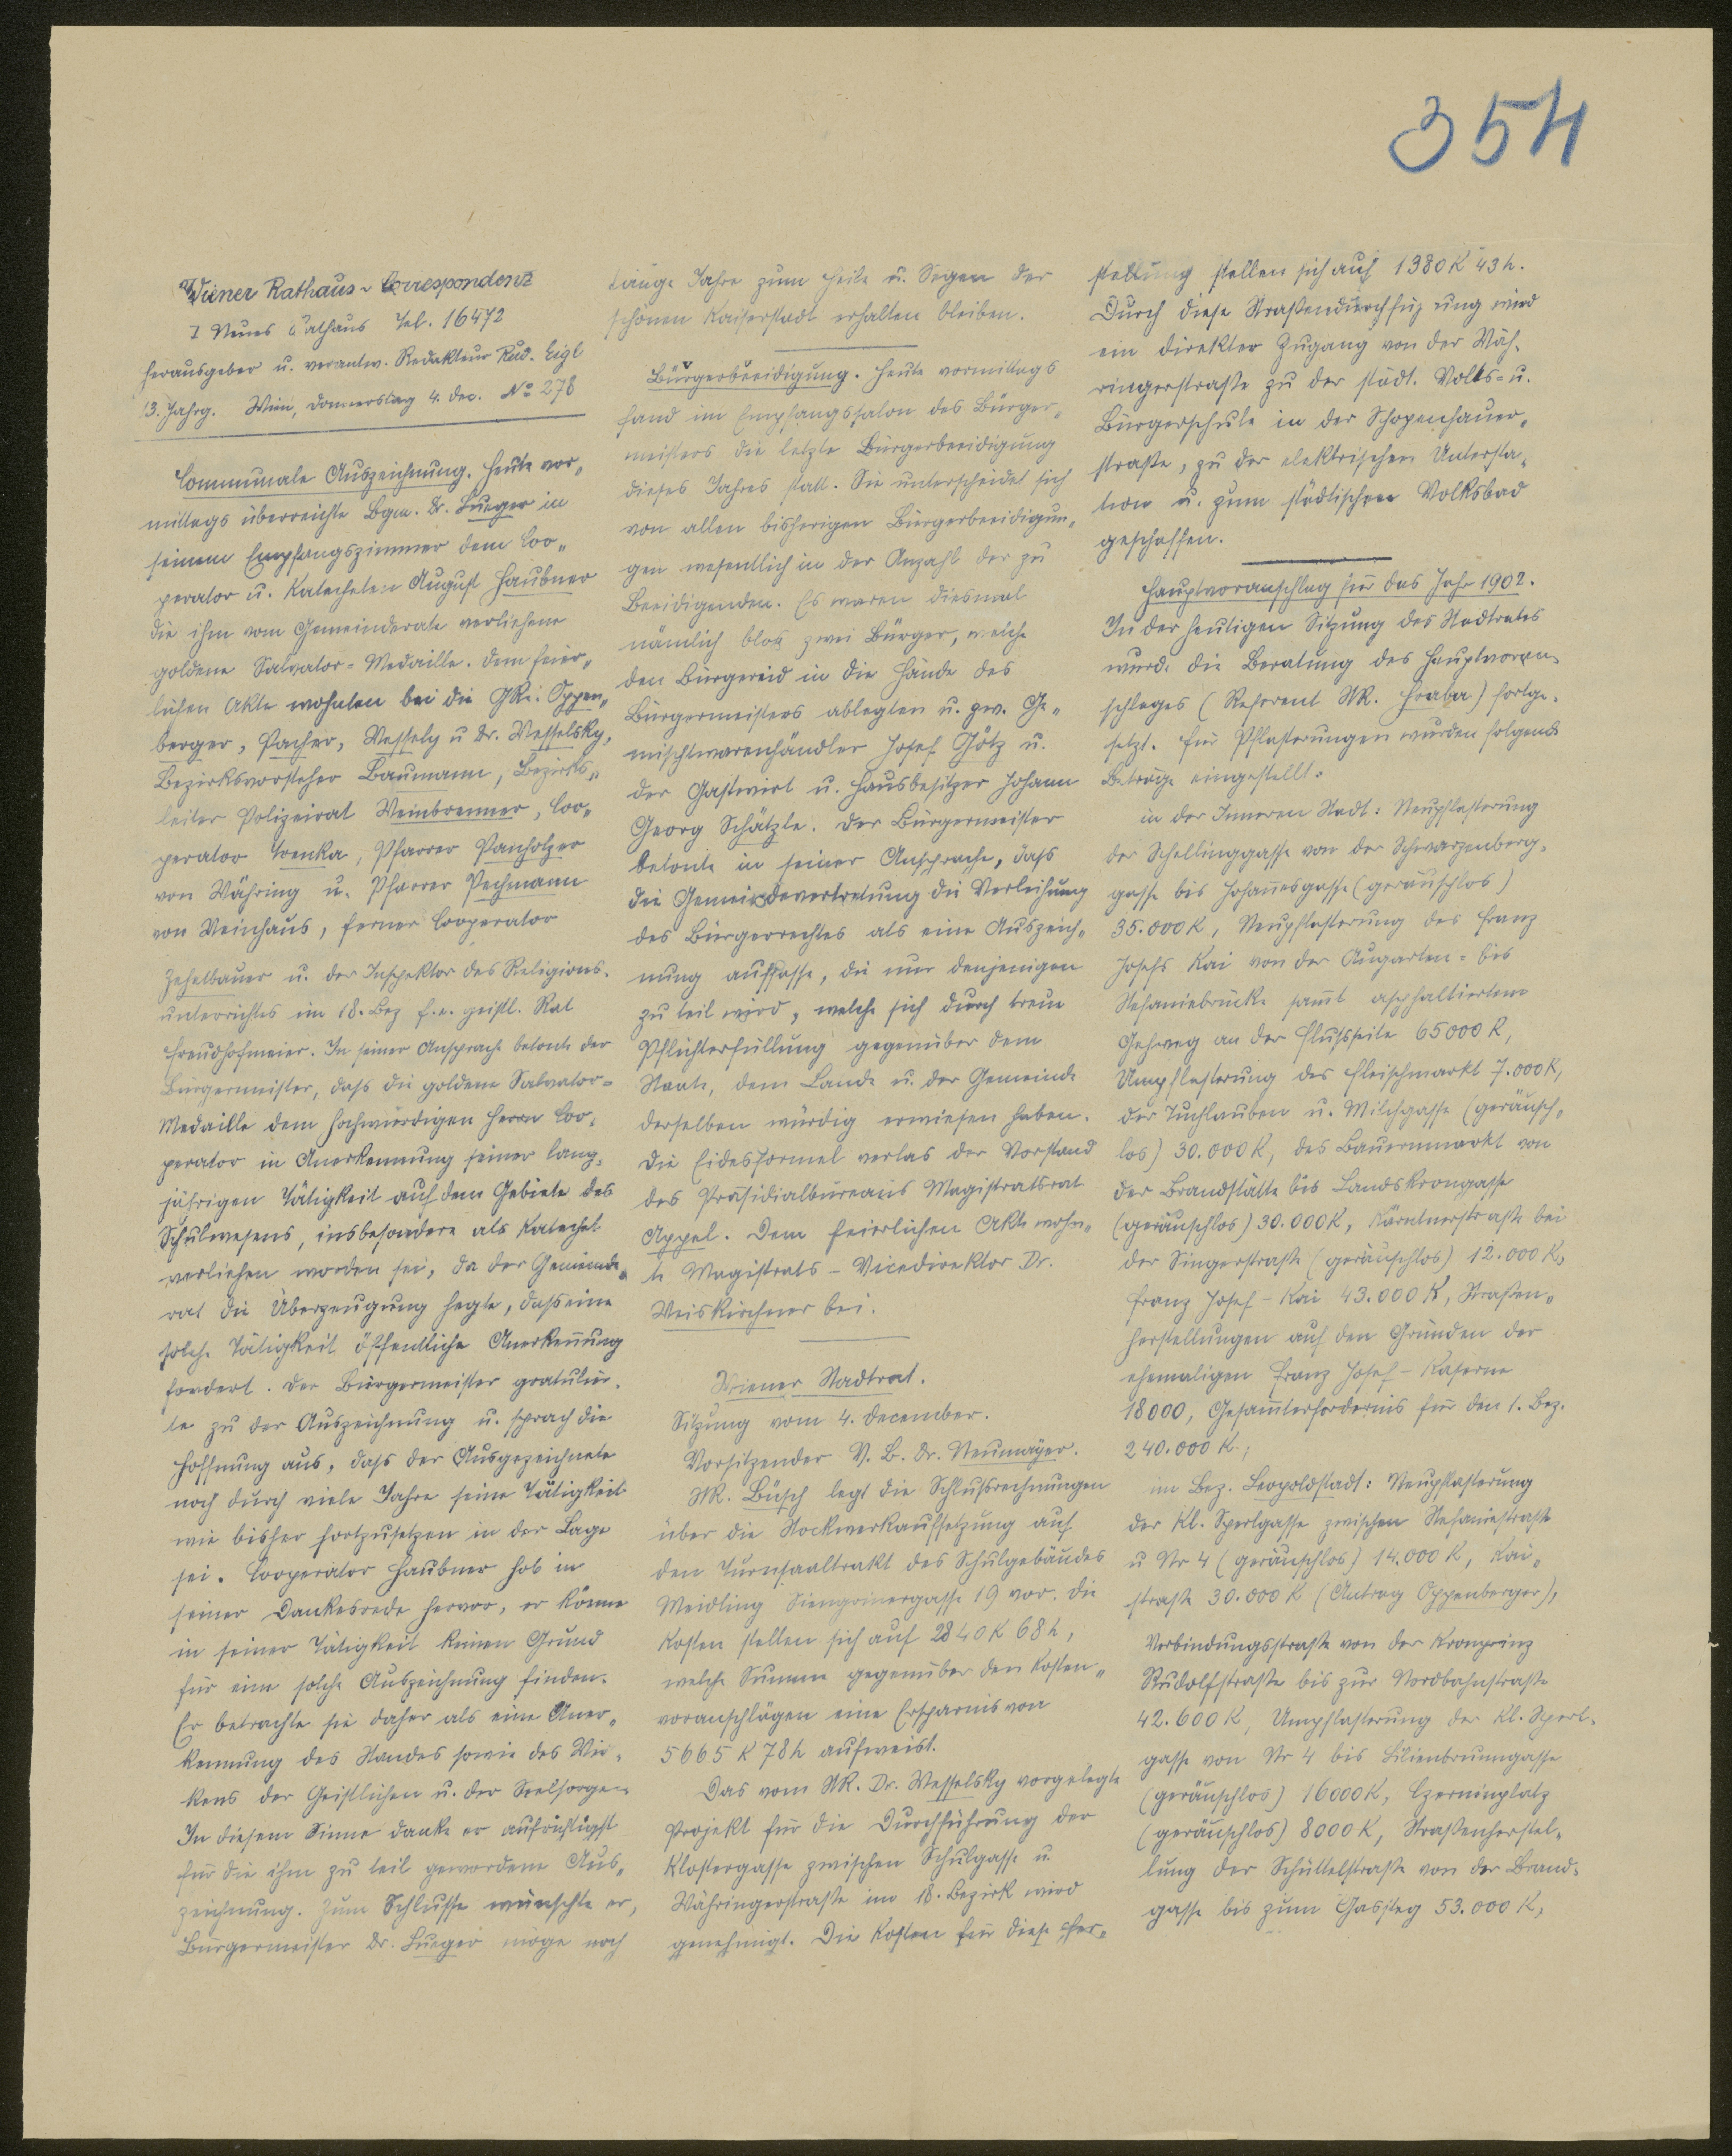 354
Wiener Rathaus-Correspondenz
I Neues Rathaus Tel. 16472
Herausgeber u. verantw. Redakteur Rud. Eigl
13. Jahrg. Wien, Donnerstag 4. Dec. No 278
Communale Auszeichnung. Heute vor„
mittags überreichte Bgm. Dr. Lueger in
seinem Empfangszimmer dem Coo„
perator u. Katecheten August Haubner
die ihm vom Gemeinderate verliehene
goldene Salvator=Medaille. Dem feier„
lichen Akte wohnten bei die GRe: Oppen„
berger, Pacher, Wessely u Dr. Wesselsky,
Bezirksvorsteher Baumann, Bezirks„
leiter Polizeirat Weinbrenner, Coo„
perator Trenka, Pfarrer Panholzer
von Währing u. Pfarrer Pechmann
von Weinhaus, ferner Cooperator
Zehetbauer u. der Inspektor des Religions.
unterrichtes im 18. Bez f.e. geistl. Rat
Freudhofmeier. In seiner Ansprache betonte der
Bürgermeister, dass die goldene Salvator=
Medaille dem hochwürdigen Herrn Coo„
perator in Anerkennung seiner lang„
jährigen Tätigkeit auf dem Gebiete des
Schulwesens, insbesondere als Katechet
verliehen worden sei, da der Gemeinde„
rat die Überzeugung hegte, dass eine
solche Tätigkeit öffentliche Anerkennung
fordert. Der Bürgermeister gratulier„
te zu der Auszeichnung u. sprach die
Hoffnung aus, dass der Ausgezeichnete
noch durch viele Jahre seine Tätigkeit
wie bisher fortzusetzen in der Lage
sei. Cooperator Haubner hob in
seiner Dankesrede hervor, er könne
in seiner Tätigkeit keinen Grund
für eine solche Auszeichnung finden.
Er betrachte sie daher als eine Aner„
kennung des Standes sowie des Wir„
kens der Geistlichen u. der Seelsorger.
In diesem Sinne danke er aufrichtigst
für die ihm zu teil gewordene Aus„
zeichnung. Zum Schlusse wünschte er,
Bürgermeister Dr. Lueger möge noch
lange Jahre zum Heile u. Segen der
schönen Kaiserstadt erhalten bleiben.
Bürgerbeeidigung. Heute vormittags
fand im Empfangssalon des Bürger„
meisters die letzte Bürgerbeeidigung
dieses Jahres statt. Sie unterscheidet sich
von allen bisherigen Bürgerbeeidigun„
gen wesentlich in der Anzahl der zu
Beeidigenden. Es waren diesmal
nämlich blos zwei Bürger, welche
den Bürgereid in die Hände des
Bürgermeisters ablegten u. zw. Ge„
mischtwarenhändler Josef Götz u.
der Gastwirt u. Hausbesitzer Johann
Georg Schätzle. Der Bürgermeister
betonte in seiner Ansprache, dass
die Gemeindevertretung die Verleihung
des Bürgerrechtes als eine Auszeich„
nung auffasse, die nur denjenigen
zu teil wird, welche sich durch treue
Pflichterfüllung gegenüber dem
Staate, dem Lande u. der Gemeinde
derselben würdig erwiesen haben.
Die Eidesformel verlas der Vorstand
des Präsidialbureaus Magistratsrat
Appel. Dem feierlichen Akte wohn„
te Magistrats-Vicedirektor Dr.
Weiskirchner bei.
Wiener Stadtrat.
Sitzung vom 4. December.
Vorsitzender V. B. Dr. Neumayer.
StR. Büsch legt die Schlußrechnungen
über die Stockwerkaufsetzung auf
den Turnsaaltrakt des Schulgebäudes
Meidling Singrinergasse 19 vor. Die
Kosten stellen sich auf 2840 K 68 h,
welche Summe gegenüber den Kosten„
voranschlägen eine Ersparnis von
5665 K 78 h aufweist.
Das vom StR. Dr. Wesselsky vorgelegte
Projekt für die Durchführung der
Klostergasse zwischen Schulgasse u.
Währingerstraße im 18. Bezirk wird
genehmigt. Die Kosten für diese Her„
stellung stellen sich auf 1380 K 43 h.
Durch diese Straßendurchführung wird
ein direkter Zugang von der Wäh„
ringerstraße zu der städt. Volks- u.
Bürgerschule in der Schopenhauer„
straße, zu der elektrischen Untersta„
tion u. zum städtischen Volksbad
geschaffen.
Hauptvoranschlag für das Jahr 1902.
In der heutigen Sitzung des Stadtrates
wurde die Beratung des Hauptvoran„
schlages (Referent StR. Hraba) fortge„
setzt. Für Pflasterungen wurden folgende
Beträge eingestellt:
in der Inneren Stadt: Neupflasterung
der Schellinggasse von der Schwarzenberg„
gasse bis Johannesgasse (geräuschlos)
35.000 K, Neupflasterung des Franz
Josefs Kai von der Augarten= bis
Stefaniebrücke samt asphaltiertem
Gehweg an der Flussseite 65000 K,
Umpflasterung des Fleischmarkt 7.000 K,
der Tuchlauben u. Milchgasse (geräusch„
los) 30.000 K, des Bauernmarkt von
der Brandstätte bis Landskrongasse
(geräuschlos) 30.000 K, Kärntnerstraße bei
der Singerstraße (geräuschlos) 12.000 K,
Franz Josef-Kai 43.000 K, Straßen„
herstellungen auf den Gründen der
ehemaligen Franz Josef-Kaserne
18000, Gesammterfordernis für den 1. Bez.
240.000 K.;
im Bez. Leopoldstadt: Neupflasterung
der Kl. Sperlgasse zwischen Stefaniestraße
u Nr 4 (geräuschlos) 14.000 K, Kai„
straße 30.000 K (Antrag Oppenberger),
Verbindungsstraße von der Kronprinz
Rudolfstraße bis zur Nordbahnstraße
42.600 K, Umpflasterung der Kl. Sperl„
gasse von Nr 4 bis Lilienbrunngasse
(geräuschlos) 16000 K, Czerninplatz
(geräuschlos) 8000 K, Straßenherstel„
lung der Schüttelstraße von der Brand„
gasse bis zum Gassteg 53.000 K,